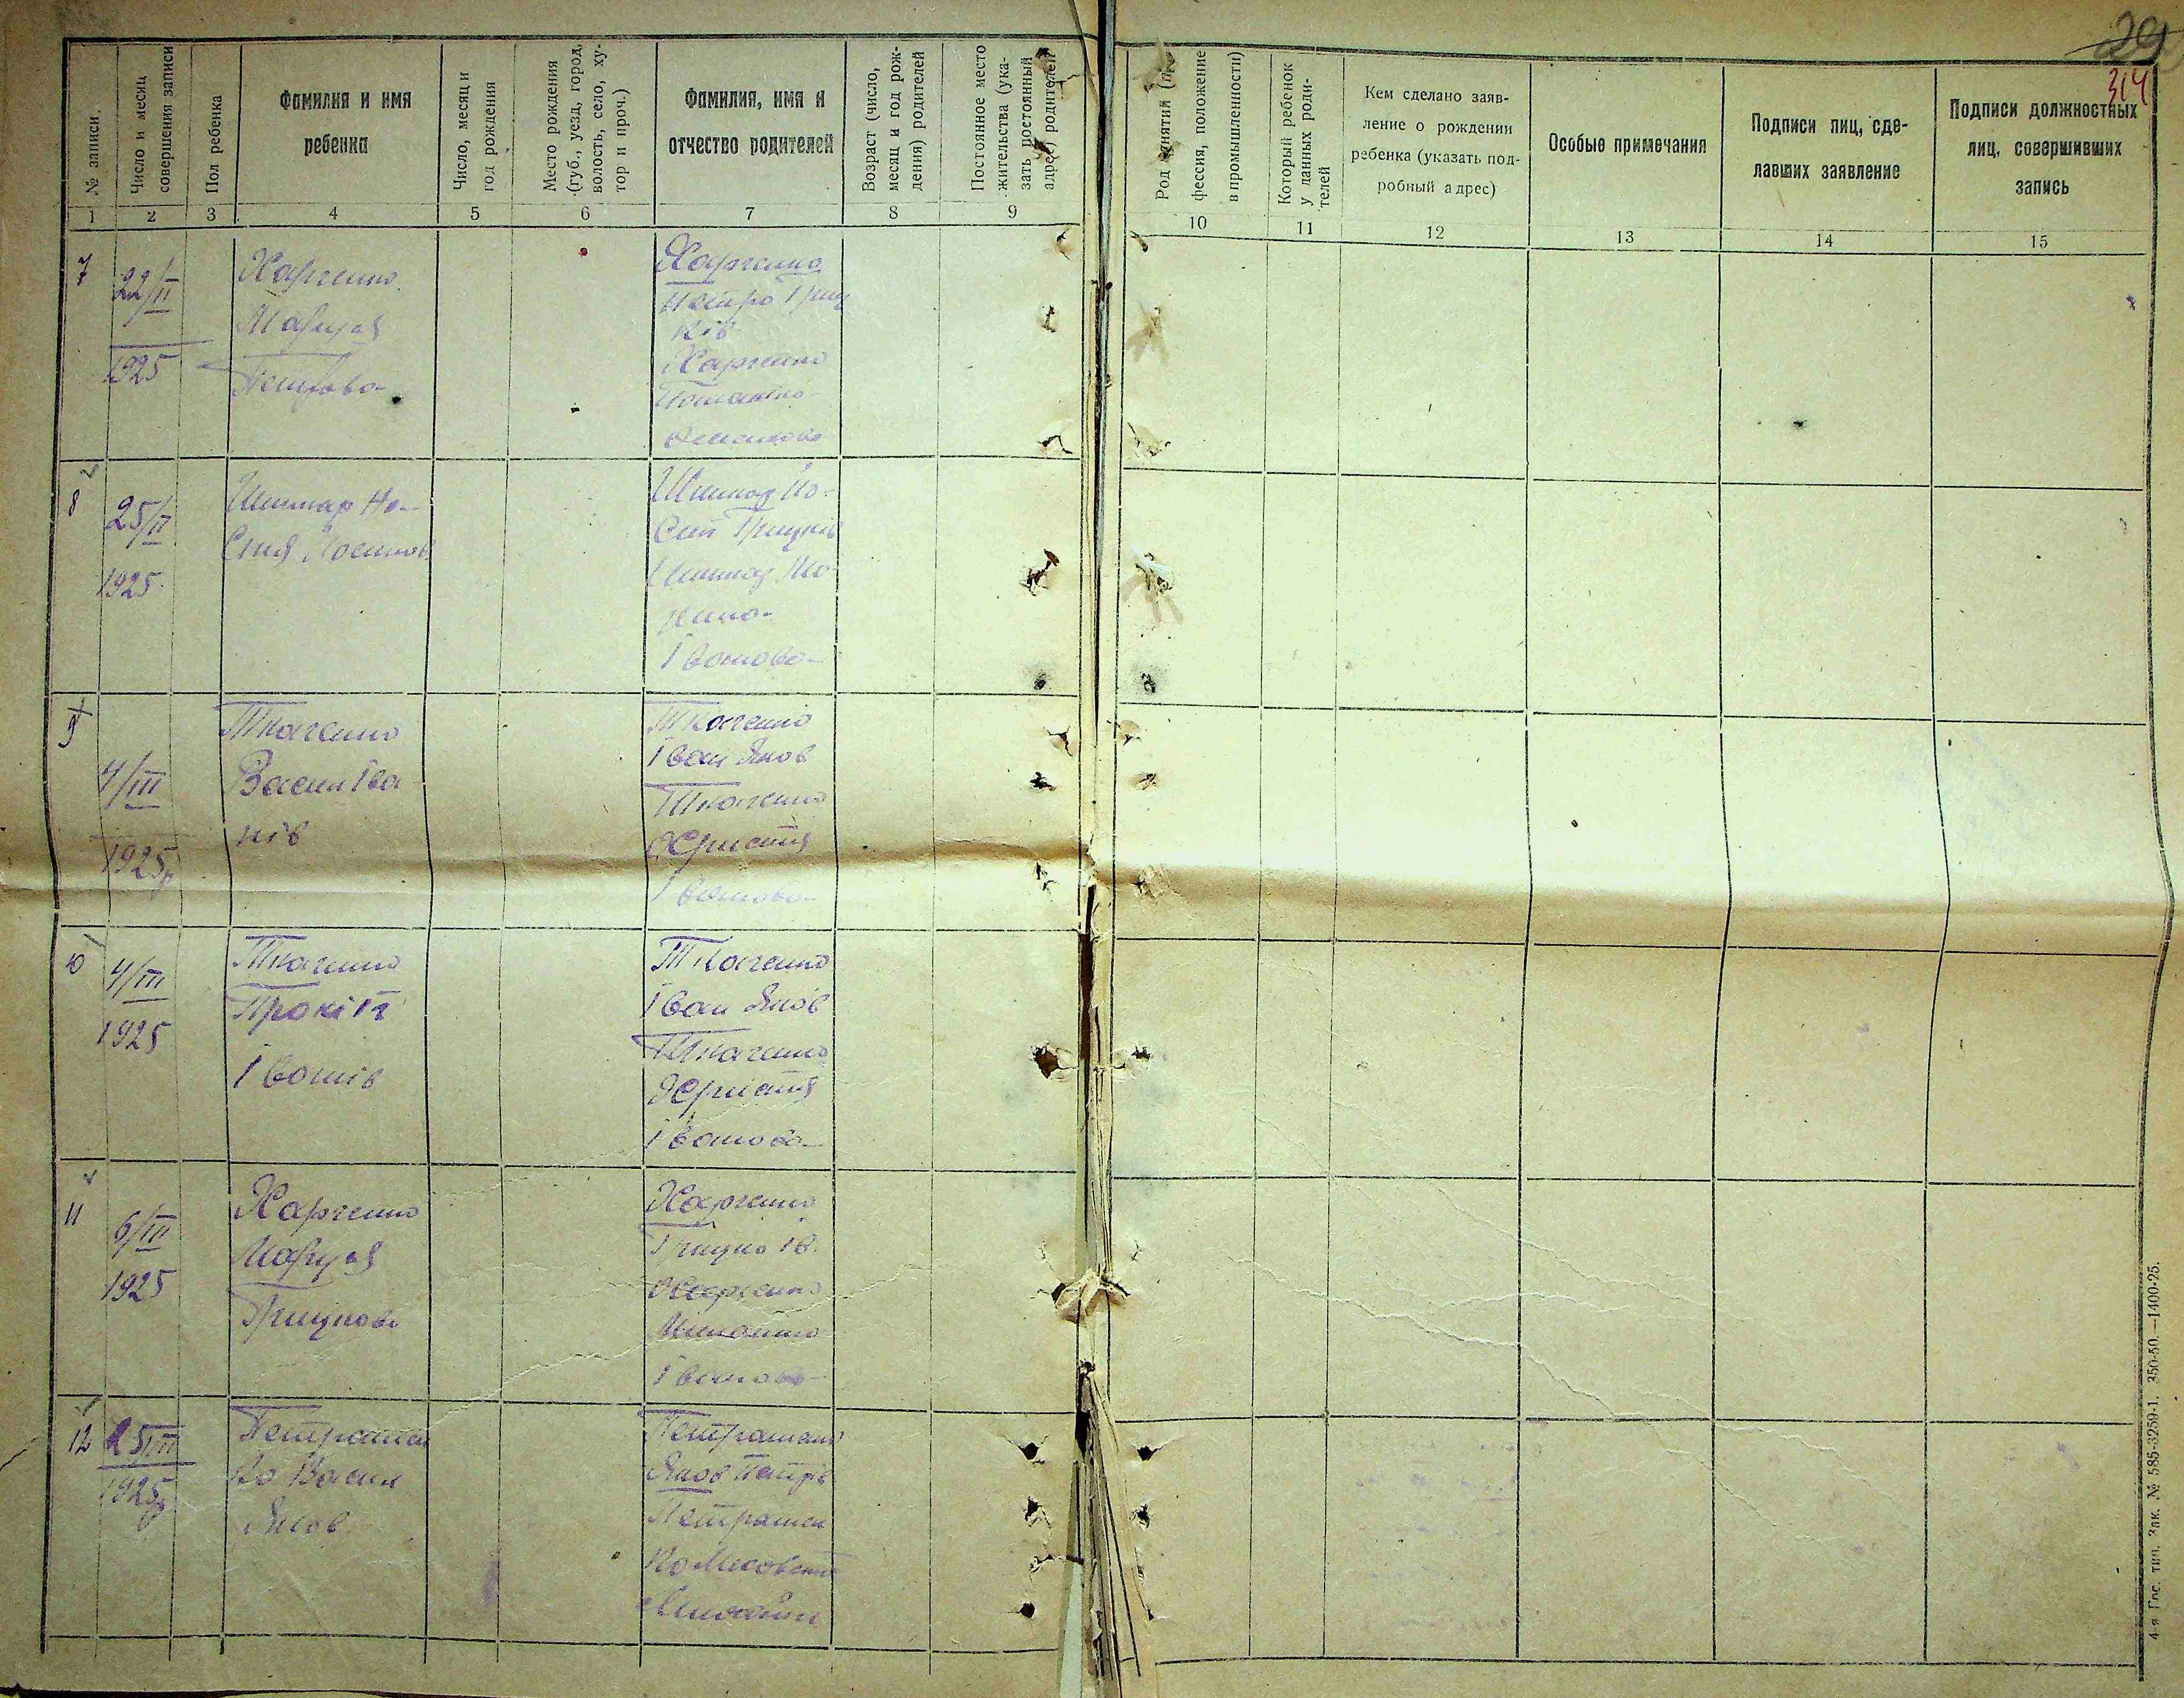 29
314
№ записи.
Число и месяц
совершения записи
Пол ребенка
Фамилия и имя
ребенка
Число, месяц и
год рождения
Место рождения
(губ., уезд, город,
волость, село, ху-
тор и проч.)
Фамилия, имя и
отчество родителей
Возраст (число,
месяц и год рож-
дения) родителей
Постоянное место
жительства (ука-
зать постоянный
адрес) родителей
Род занятий
фессия, положение
в промышленности)
Который ребенок
у данных роди-
телей
Кем сделано заяв-
ление о рождении
ребенка (указать под-
робный адрес)
Особые примечания
Подписи лиц, сде-
лавших заявление
Подписи должностных
лиц, совершивших
запись
1 2 3 4 5 6 7 8 9 10 11 12 13 14 15
7
22/II
1925
Харченко
Маруся
Петрова
Харченко
Петро Гриц
ків
Харченко
8
25/II
1925
Шинкар
Шинкар Йо-
сип Грицків
Шинкар
Іванова
9
4/III
1925р
Ткаченко
Васил Іва
нів
Ткаченко
Іван Яков
Ткаченко
Христя
Іванова
10
4/III
1925
Ткаченко
Прокіп
Іванів
Ткаченко
Іван Яков
Ткаченко
Христя
Іванова
11
6/III
1925
Харченко
Маруся
Грицкова
Харченко
Грицко Ів.
Харченко
Іванова
12
25/III
1925р
Петрашен
ко Васил
Яков
Петрашенко
Яков Петрів
Петрашен
ко
4-я Гос. тип. Зак. № 585-3259-1. 350-50.—1400-25.